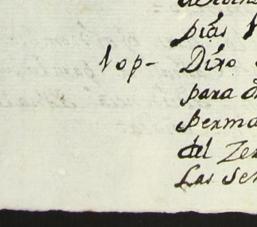 pias
lop- Dixo
para
Perma
del Zer
Las Se